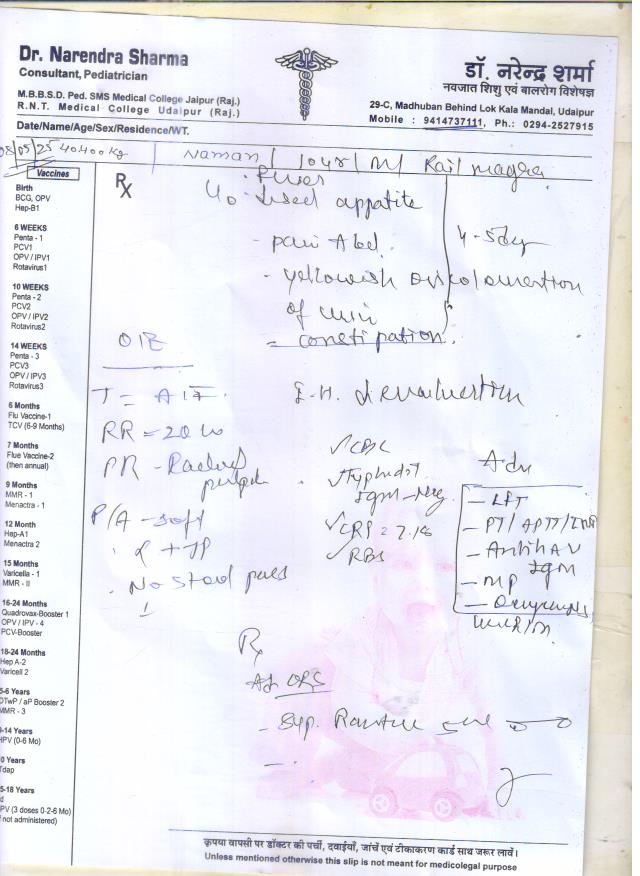 Dr. Narendra Sharma
Consultant, Pediatrician
M.B.B.S.D. Ped. SMS Medical College Jaipur (Raj.)
R.N.T. Medical College Udaipur (Raj.)
डॉ. नरेन्द्र शर्मा
नवजात शिशु एवं बालरोग विशेषज्ञ
29-C, Madhuban Behind Lok Kala Mandal, Udaipur
Mobile : 9414737111, Ph.: 0294-2527915
Date/Name/Age/Sex/Residence/WT.
Naman / 10 yr / M / Rail magra
Vaccines
Birth
BCG, OPV
Hep-B1
6 WEEKS
Penta - 1
PCV1
OPV / IPV1
Rotavirus1
10 WEEKS
Penta - 2
PCV2
OPV / IPV2
Rotavirus2
14 WEEKS
Penta - 3
PCV3
OPV / IPV3
Rotavirus3
6 Months
Flu Vaccine-1
TCV (6-9 Months)
7 Months
Flue Vaccine-2
(then annual)
9 Months
MMR - 1
Menactra - 1
12 Month
Hep-A1
Menactra 2
15 Months
Varicella - 1
MMR - II
16-24 Months
Quadrovax-Booster 1
OPV / IPV - 4
PCV-Booster
18-24 Months
Hep A-2
Varicell 2
5-6 Years
DTwP / aP Booster 2
MMR - 3
-14 Years
HPV (0-6 Mo)
0 Years
Tdap
5-18 Years
PV (3 doses 0-2-6 Mo)
not administered)
Rx
appatite
- pain Abd.
4-5 day
- yellowish
of
- constipation.
O/E
RR = 20
PR -
P/A - soft
- No
CBC
Typhidot
IgM - Neg
CRP = 7.18
RBS
Adv
- LFT
- PT / APTT / INR
- Anti HAV
IgM
- MP
Urine R/M
Rx
ORS
- Syp.
कृपया वापसी पर डॉक्टर की पर्ची, दवाईयाँ, जांचें एवं टीकाकरण कार्ड साथ जरूर लावें।
Unless mentioned otherwise this slip is not meant for medicolegal purpose